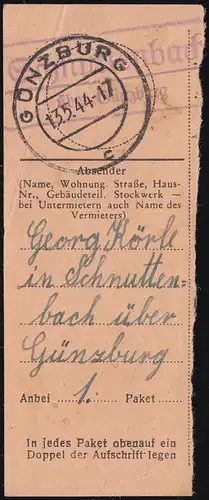 GÜNZBURG
13.5.44.-17
Absender
(Name, Wohnung, Straße, Haus-
Nr., Gebäudeteil, Stockwerk —
bei Untermietern auch Name des
Vermieters)
Georg Körle
in Schnutten-
bach über
Günzburg
Anbei 1. Paket
In jedes Paket obenauf ein
Doppel der Aufschrift legen